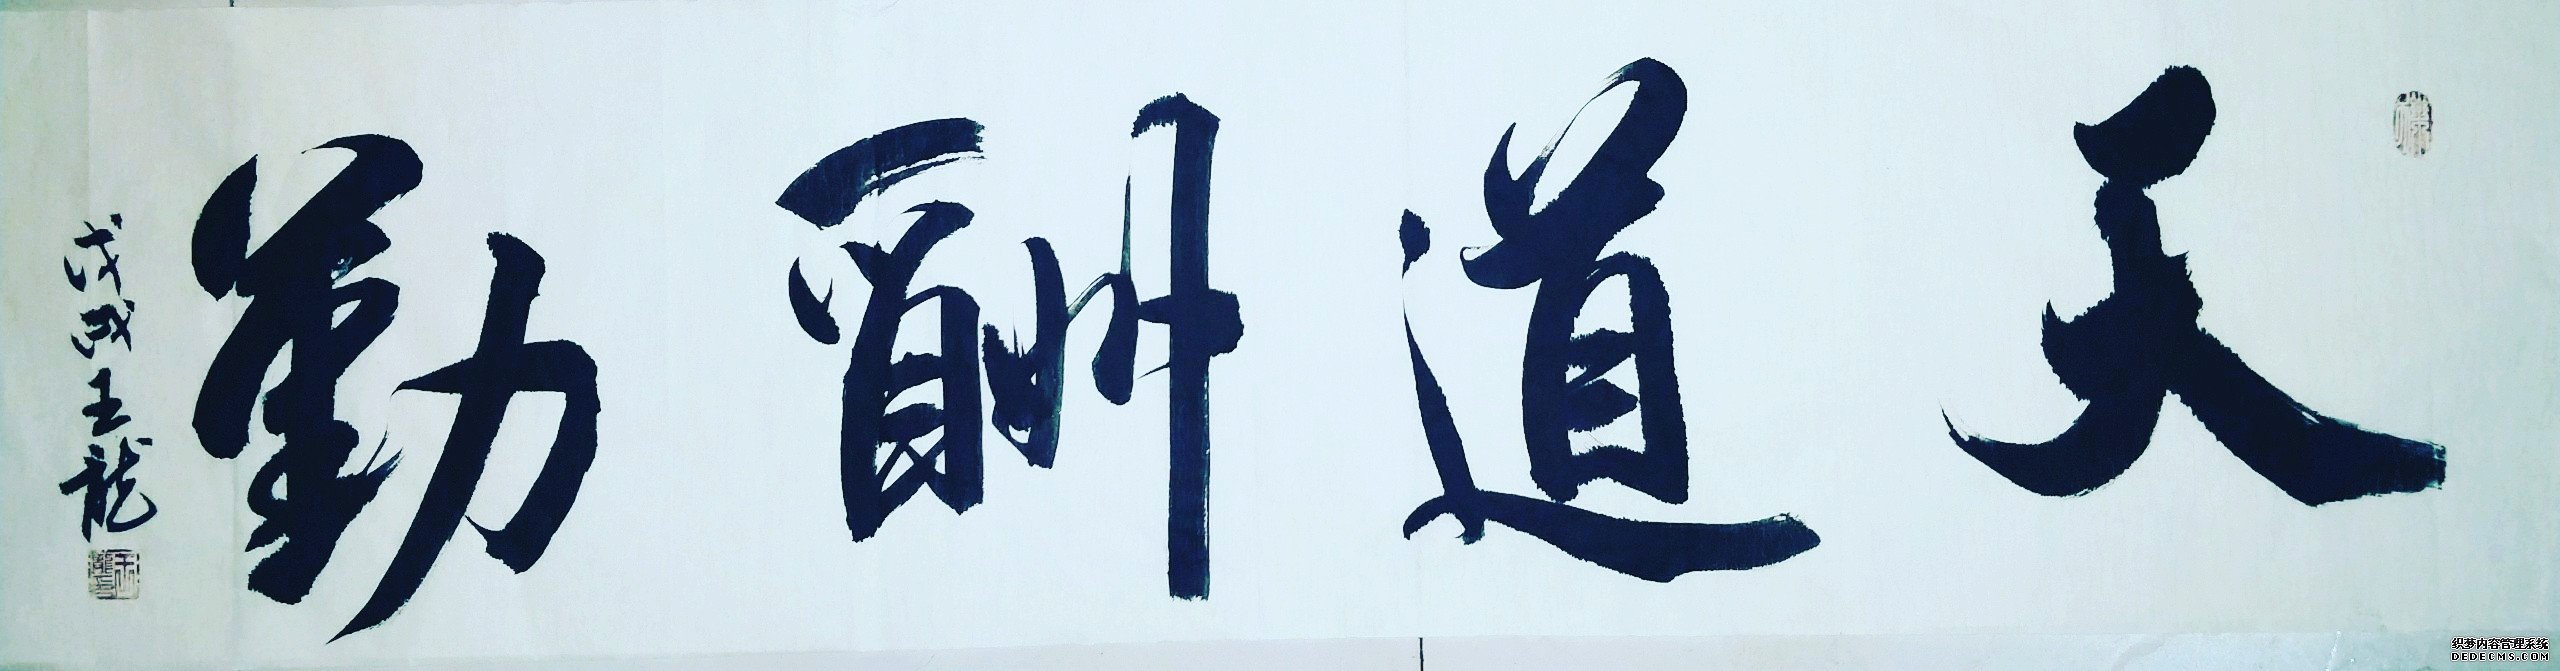 天道酬勤
戊戌王龍
织梦内容管理系统
DEDECMS.COM